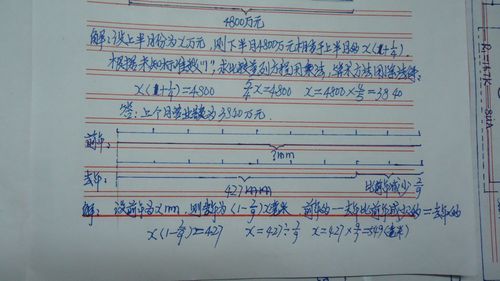 4800万元
解:设上半月份为x万元,则下半月4800万元相当于上半月的x(1+1/4).
根据未知标准数"1",求比数列方程用乘法,算术方法用除法
x(1+1/4)=4800 5/4x=4800 x=4800×4/5=3840
答:上个月营业数为3840万元.
前年:
?mm
去年:
427mm 比前年减少2/9
解:设前年为xmm,则去年为(1-2/9)x毫米 前年的一去年比前年减少的=去年的
x(1-2/9)=427 x=427÷7/9 x=427×9/7=549(毫米)